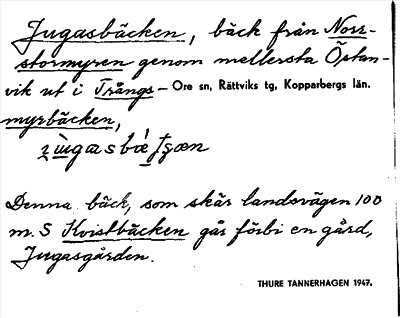 Jugasbäcken, bäck från Norr-
stormyren genom mellersta Östan-
vik ut i Trångs- Ore sn, Rättviks tg, Kopparbergs län.
myrbäcken,
Denna bäck, som skär landsvägen 100
m. S Kvistbäcken går förbi en gård,
Jugasgården.
THURE TANNERHAGEN 1947.